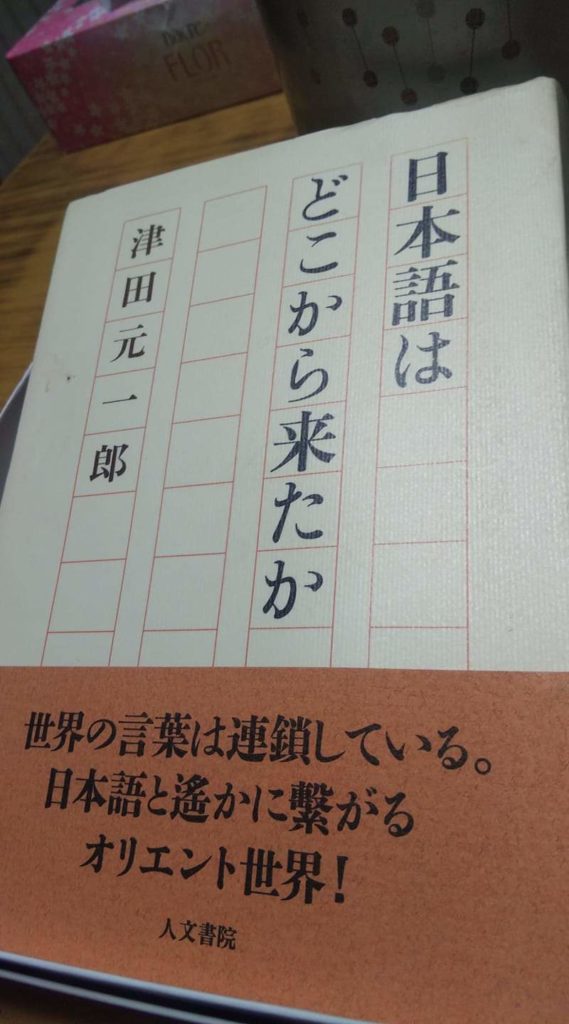 日本語は
どこから来たか
津田元一郎
世界の言葉は連鎖している。
日本語と遙かに繋がる
オリエント世界！
人文書院
FLOR